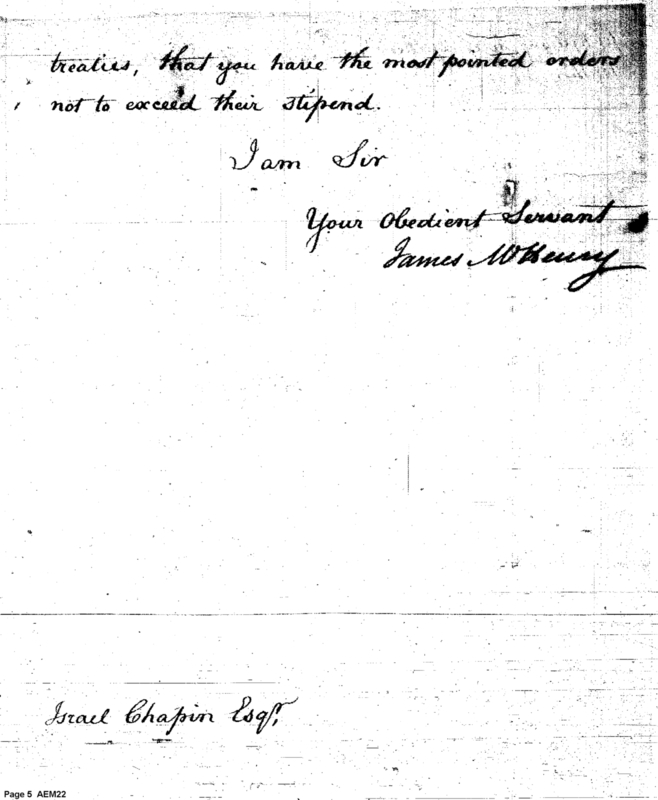 treaties, that you have the most pointed orders
not to exceed their stipend.
I am Sir
Your Obedient Servant
James McHenry
Israel Chapin Esqr,
Page 5 AEM22